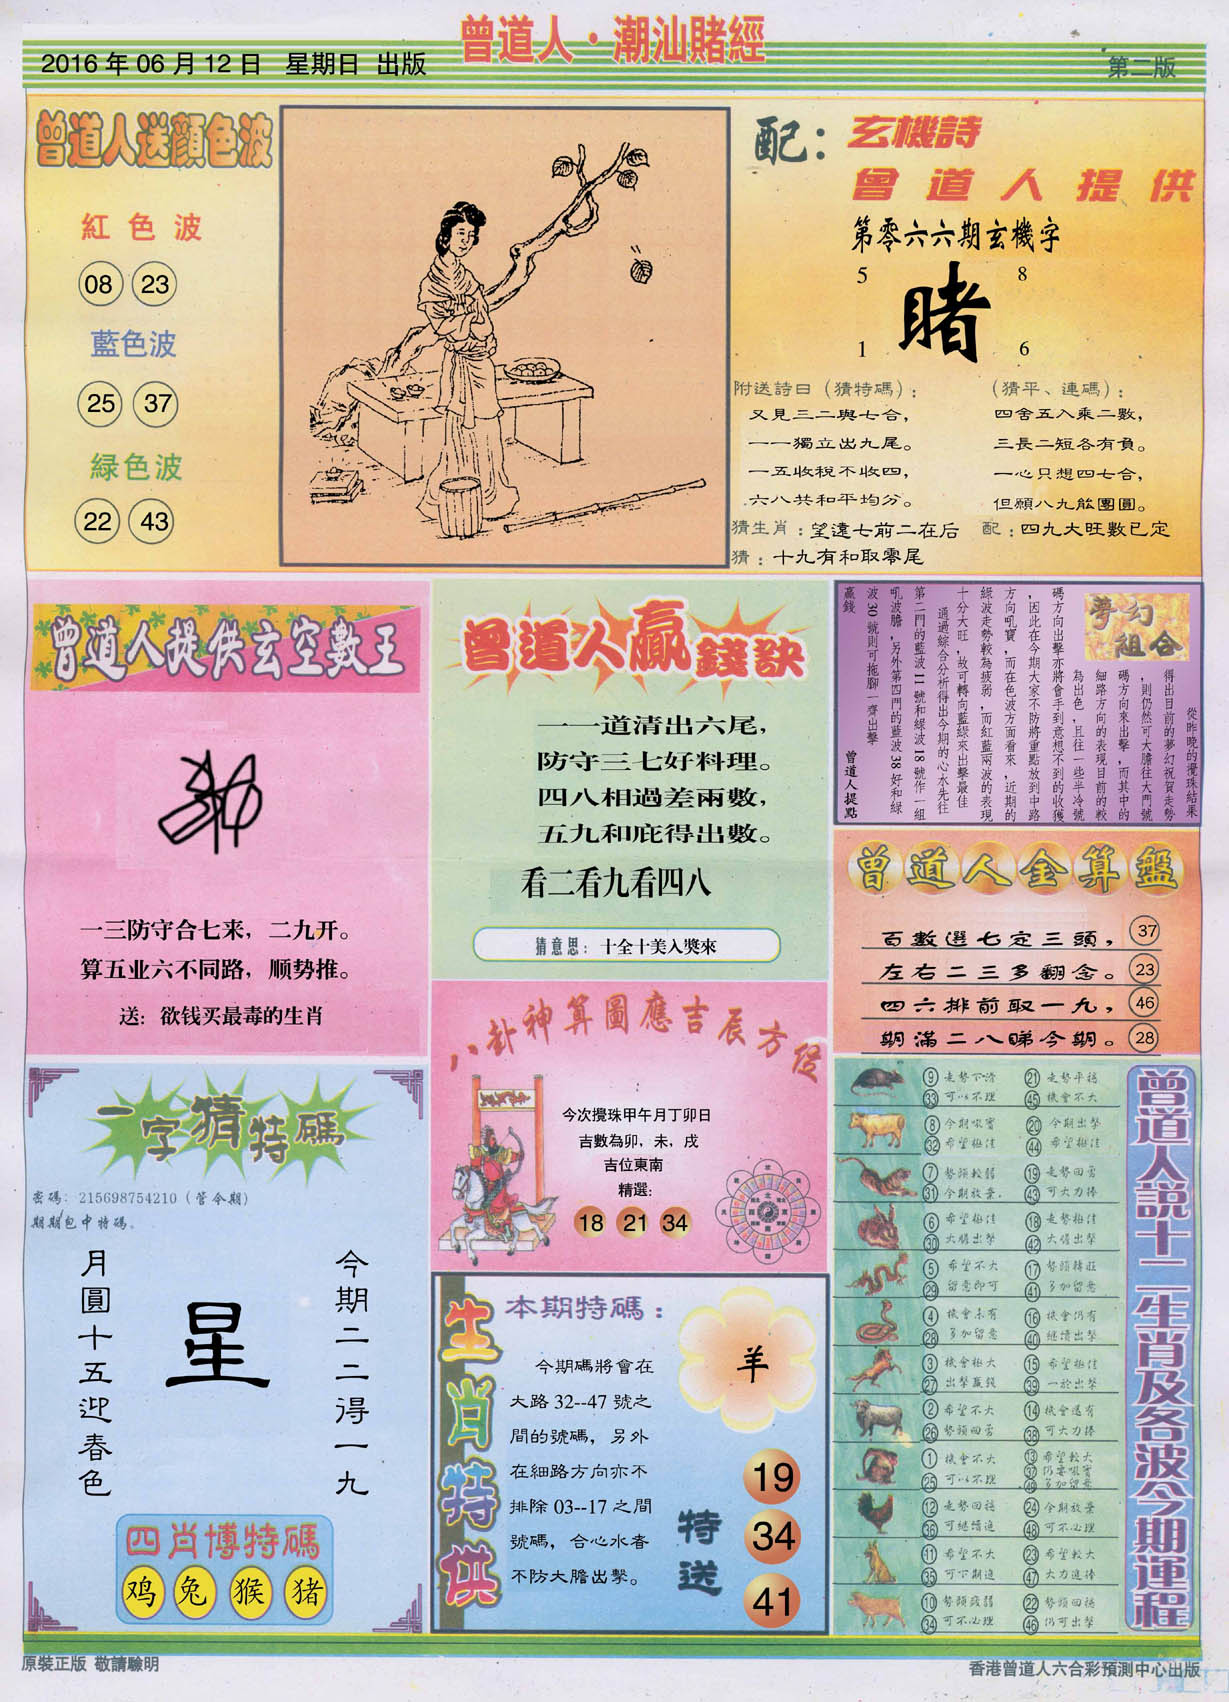 曾道人·潮汕賭經
2016 年 06 月 12 日 星期日 出版
第二版
曾道人送顔色波
紅色波
08 23
藍色波
25 37
緑色波
22 43
配：玄機詩
曾道人提供
第零六六期玄機字
5 8
賭
1 6
附送詩曰（猜特碼）：
又見三二與七合，
一一獨立出九尾。
一五收稅不收四，
六八共和平均分。
（猜平、連碼）：
四舍五入乘二數，
三長二短各有負。
一心只想四七合，
但願八九能團圓。
猜生肖：望遠七前二在后
配：四九大旺數已定
猜：十九有和取零尾
曾道人提供玄空數王
一三防守合七来，二九开。
算五业六不同路，顺势推。
送：欲钱买最毒的生肖
曾道人贏錢訣
一一道清出六尾，
防守三七好料理。
四八相過差兩數，
五九和庇得出數。
看二看九看四八
猜意思：十全十美入獎來
夢幻組合
從昨晚的攪珠結果
得出目前的夢幻祝賀走勢
，則仍然可大膽往大門號
碼方向來出擊，而其中的
細路方向的表現目前的較
為出色，且往一些半冷號
碼方向出擊亦將會手到意想不到的收獲
，因此在今期大家不防將重點放到中路
方向吼寶，而在色波方面看來，近期的
綠波走勢較為疲弱，而紅藍兩波的表現
十分大旺，故可轉向藍綠來出擊最佳
通過綜合分析得出今期的心水先往
第二門的藍波 11 號和綠波 18 號作一組
吼波膽，另外第四門的藍波 38 好和綠
波 30 號則可拖腳一齊出擊
贏錢
曾道人提點
曾道人金算盤
百數選七定三頭， 37
左右二三多翻念。 23
四六排前取一九， 46
期滿二八睇今期。 28
一字猜特碼
密碼：215698754210（管今期）
期期包中特碼。
今期二二得一九
星
月圓十五迎春色
四肖博特碼
鸡 兔 猴 猪
八卦神算圖應吉辰方位
今次攪珠甲午月丁卯日
吉數為卯，未，戌
吉位東南
精選:
18 21 34
生肖特供
本期特碼：
今期碼將會在
大路 32--47 號之
間的號碼，另外
在細路方向亦不
排除 03--17 之間
號碼，合心水者
不防大膽出擊。
羊
特送
19
34
41
曾道人說十二生肖及各波今期運程
9 走勢下滑 21 走勢平穩
33 可以不理 45 機會不大
8 今期吸寶 20 今期出擊
32 希望極佳 44 希望極佳
7 勢頭較弱 19 走勢回勇
31 今期放棄 43 可大力捧
6 希望極佳 18 走勢極佳
30 大膽出擊 42 大膽出擊
5 希望不大 17 勢頭轉旺
29 留意即可 41 多加留意
4 機會未有 16 機會仍有
28 多加留意 40 繼續出擊
3 機會極大 15 希望極佳
27 出擊贏錢 39 一於出擊
2 希望不大 14 機會還有
26 勢頭回勇 38 可大力捧
1 機會不大 13 希望較大
25 可以不理 37 仍要吸寶
49 多加留意
12 走勢回穩 24 今期放棄
36 可繼續追 48 可不必理
11 希望不大 23 希望較大
35 可下期追 47 大力追捧
10 勢頭疲弱 22 勢頭回穩
34 可不必理 46 仍可出擊
原裝正版 敬請驗明
香港曾道人六合彩預測中心出版